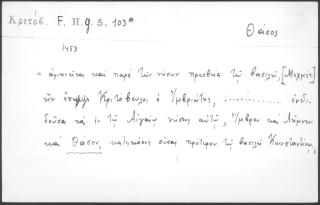 Κριτόβ. F. H. g. 5, 103ª
Θάσος
1453
" ἀφικνεῖται καὶ παρὰ τῶν νήσων πρεσβεία τῷ βασιλεῖ, [Μεχμὲτ]
ἣν ἔπεμψε Κριτόβουλος ὁ Ἴμβριώτης, ............... ἐνδι-
δοῦσα τὰς ἐν τῷ Αἰγαίῳ νήσους αὐτῷ, Ἴμβρον καὶ Λῆμνον
καὶ Θάσον, κατηκόους οὔσας πρότερον τῷ βασιλεῖ Κωνσταντίνῳ,